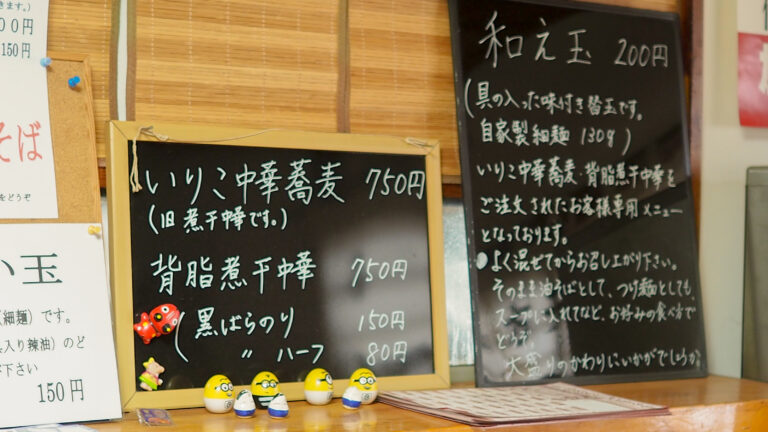 きます。)
00円
150円
そば
をどうぞ
い玉
(細麺)です。
入り辣油)のど
下さい
150円
いりこ中華蕎麦 750円
(旧煮干中華です。)
背脂煮干中華 750円
(黒ばらのり 150円
〃 ハーフ 80円
和え玉 200円
(具の入った味付き替玉です。
自家製細麺 130g)
いりこ中華蕎麦・背脂煮干中華を
ご注文されたお客様専用メニュー
となっております。
●よく混ぜてからお召し上がり下さい。
そのまま油そばとして、つけ麺としても、
スープに入れてなど、お好みの食べ方で
どうぞ。
大盛りのかわりにいかがでしょうか?